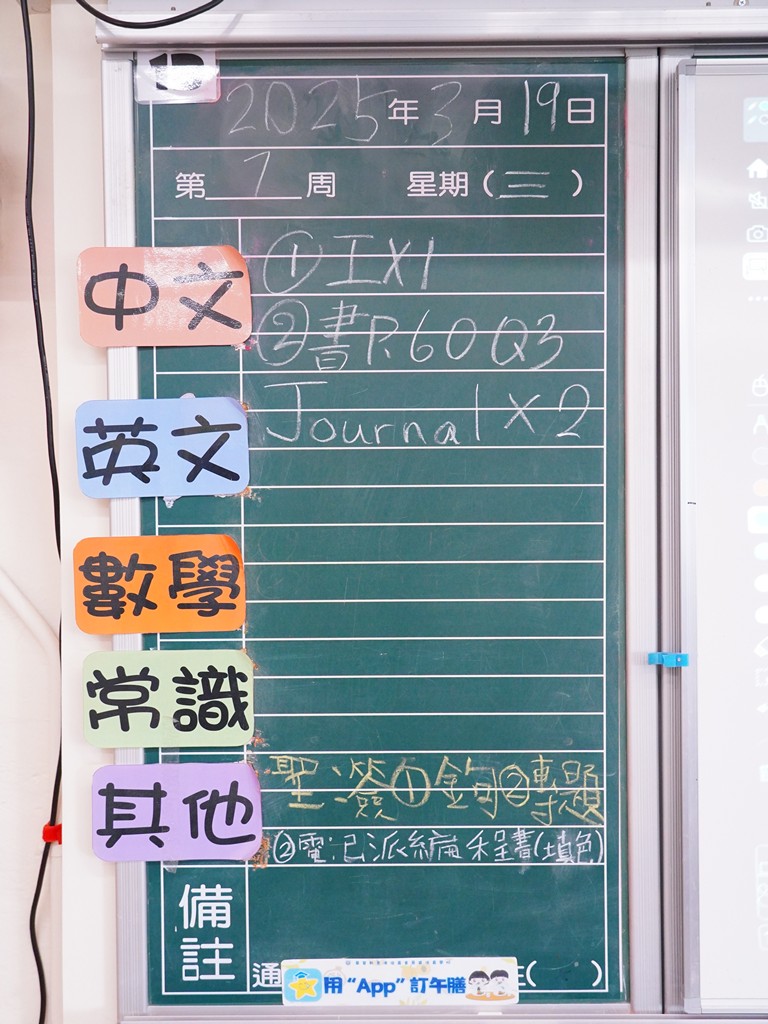 2025年3月19日
第 7 周 星期(三)
中文
①工X1
②書P.60 Q3
英文
Journal X 2
數學
常識
其他
聖:簽①金句②專題
②電:已派編程書(填色)
備註
通
用“App”訂午膳
( )